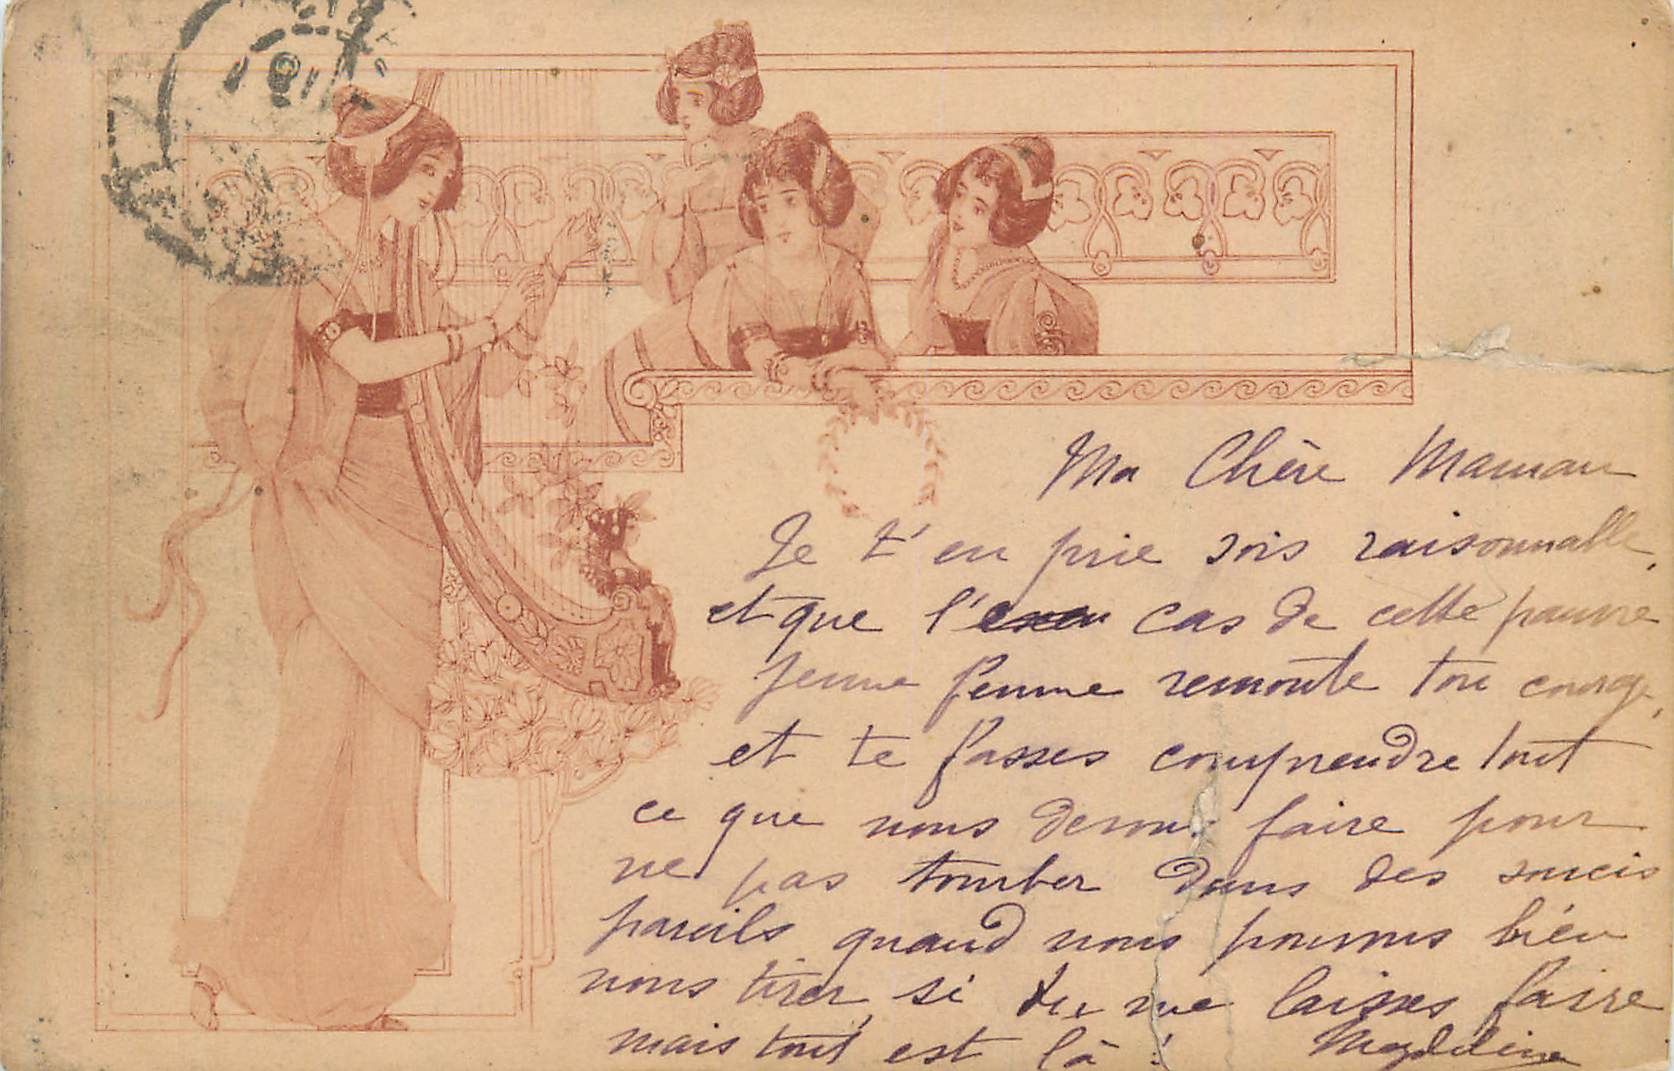 Ma Chère Maman
Je t'en prie sois raisonnable,
et que l' cas de cette pauvre
jeune femme remonte ton courage,
et te fasses comprendre tout
ce que nous devons faire pour
ne pas tomber dans des soucis
pareils quand nous pouvons bien
nous tirer, si tu me laisses faire
mais tout est là !